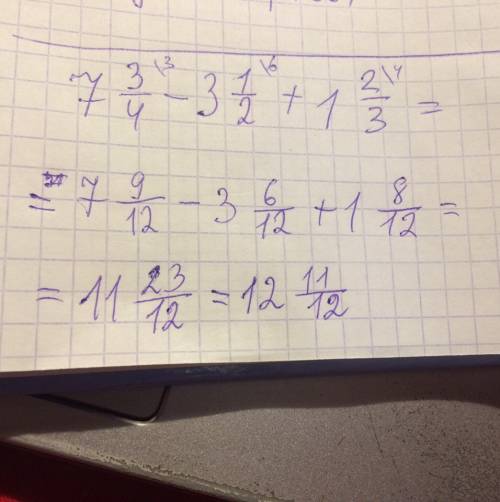 7 3/4 \3 - 3 1/2 \6 + 1 2/3 \4 =
= 7 9/12 - 3 6/12 + 1 8/12 =
= 11 23/12 = 12 11/12